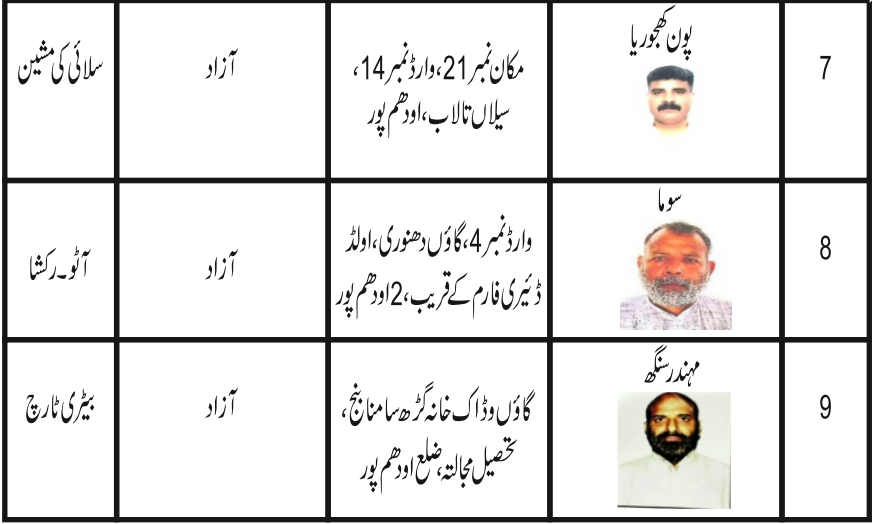 7
پون کھجوریا
مکان نمبر 21، وارڈ نمبر 14،
سیلاں تالاب، اودھم پور
آزاد
سلائی کی مشین
8
سوما
وارڈ نمبر 4، گاؤں دھنوری، اولڈ
ڈئیری فارم کے قریب، 2 اودھم پور
آزاد
آٹو۔رکشا
9
مہندر سنگھ
گاؤں و ڈاک خانہ گڑھ سامنا بنج،
تحصیل مجالتہ، ضلع اودھم پور
آزاد
بیٹری ٹارچ